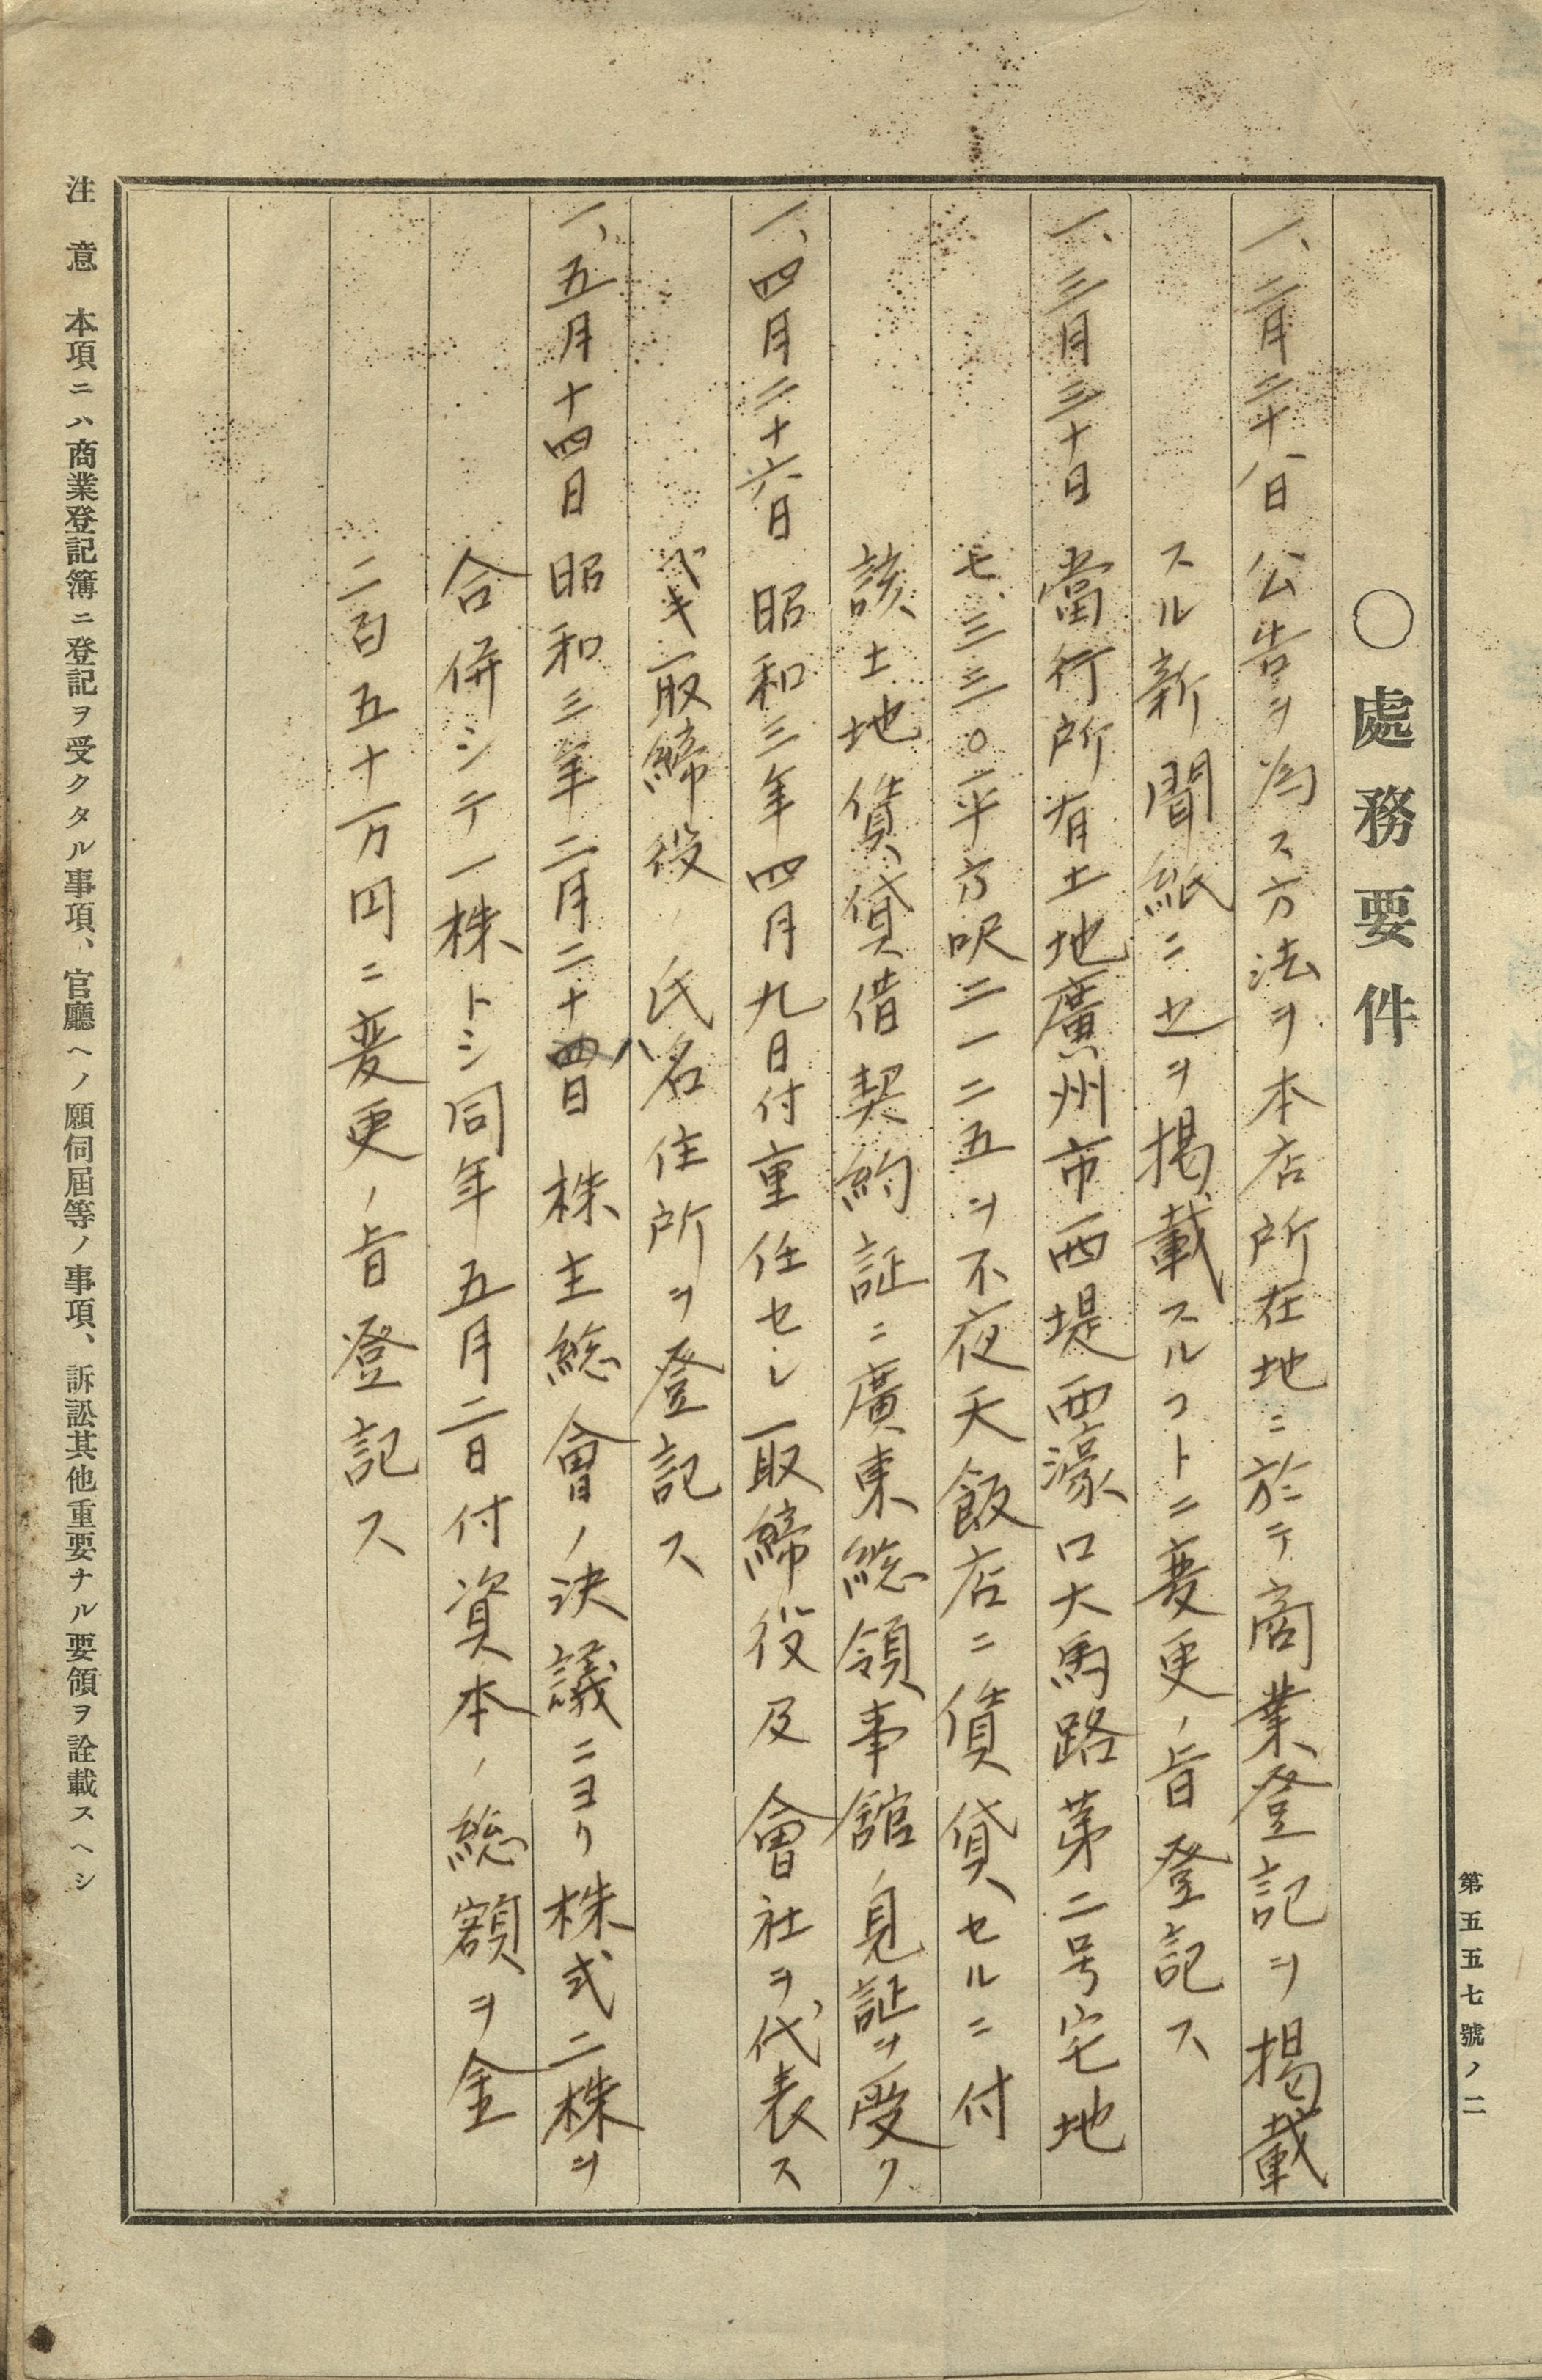 第五五七號ノ二
〇處務要件
一、二月二十八日 公告ヲ為ス方法ヲ本店所在地ニ於テ商業登記ヲ掲載
スル新聞紙ニ之ヲ掲載スルコトニ変更ノ旨登記ス
一、三月三十日 當行所有土地廣州市西堤西濠口大馬路第二号宅地
七、三三〇平方呎二一二五ヲ不夜天飯店ニ賃貸セルニ付
該土地賃貸借契約証ニ廣東総領事館ノ見証ヲ受ク
一、四月二十六日 昭和三年四月九日付重任セシ取締役及會社ヲ代表ス
ベキ取締役ノ氏名住所ヲ登記ス
一、五月十四日 昭和三年二月二十八日 株主総會ノ決議ニヨリ株式二株ヲ
合併シテ一株トシ同年五月二日付資本ノ総額ヲ金
二百五十万円ニ変更ノ旨登記ス
注意 本項ニハ商業登記簿ニ登記ヲ受クタル事項、官廳ヘノ願伺屆等ノ事項、訴訟其他重要ナル要領ヲ詮載スヘシ